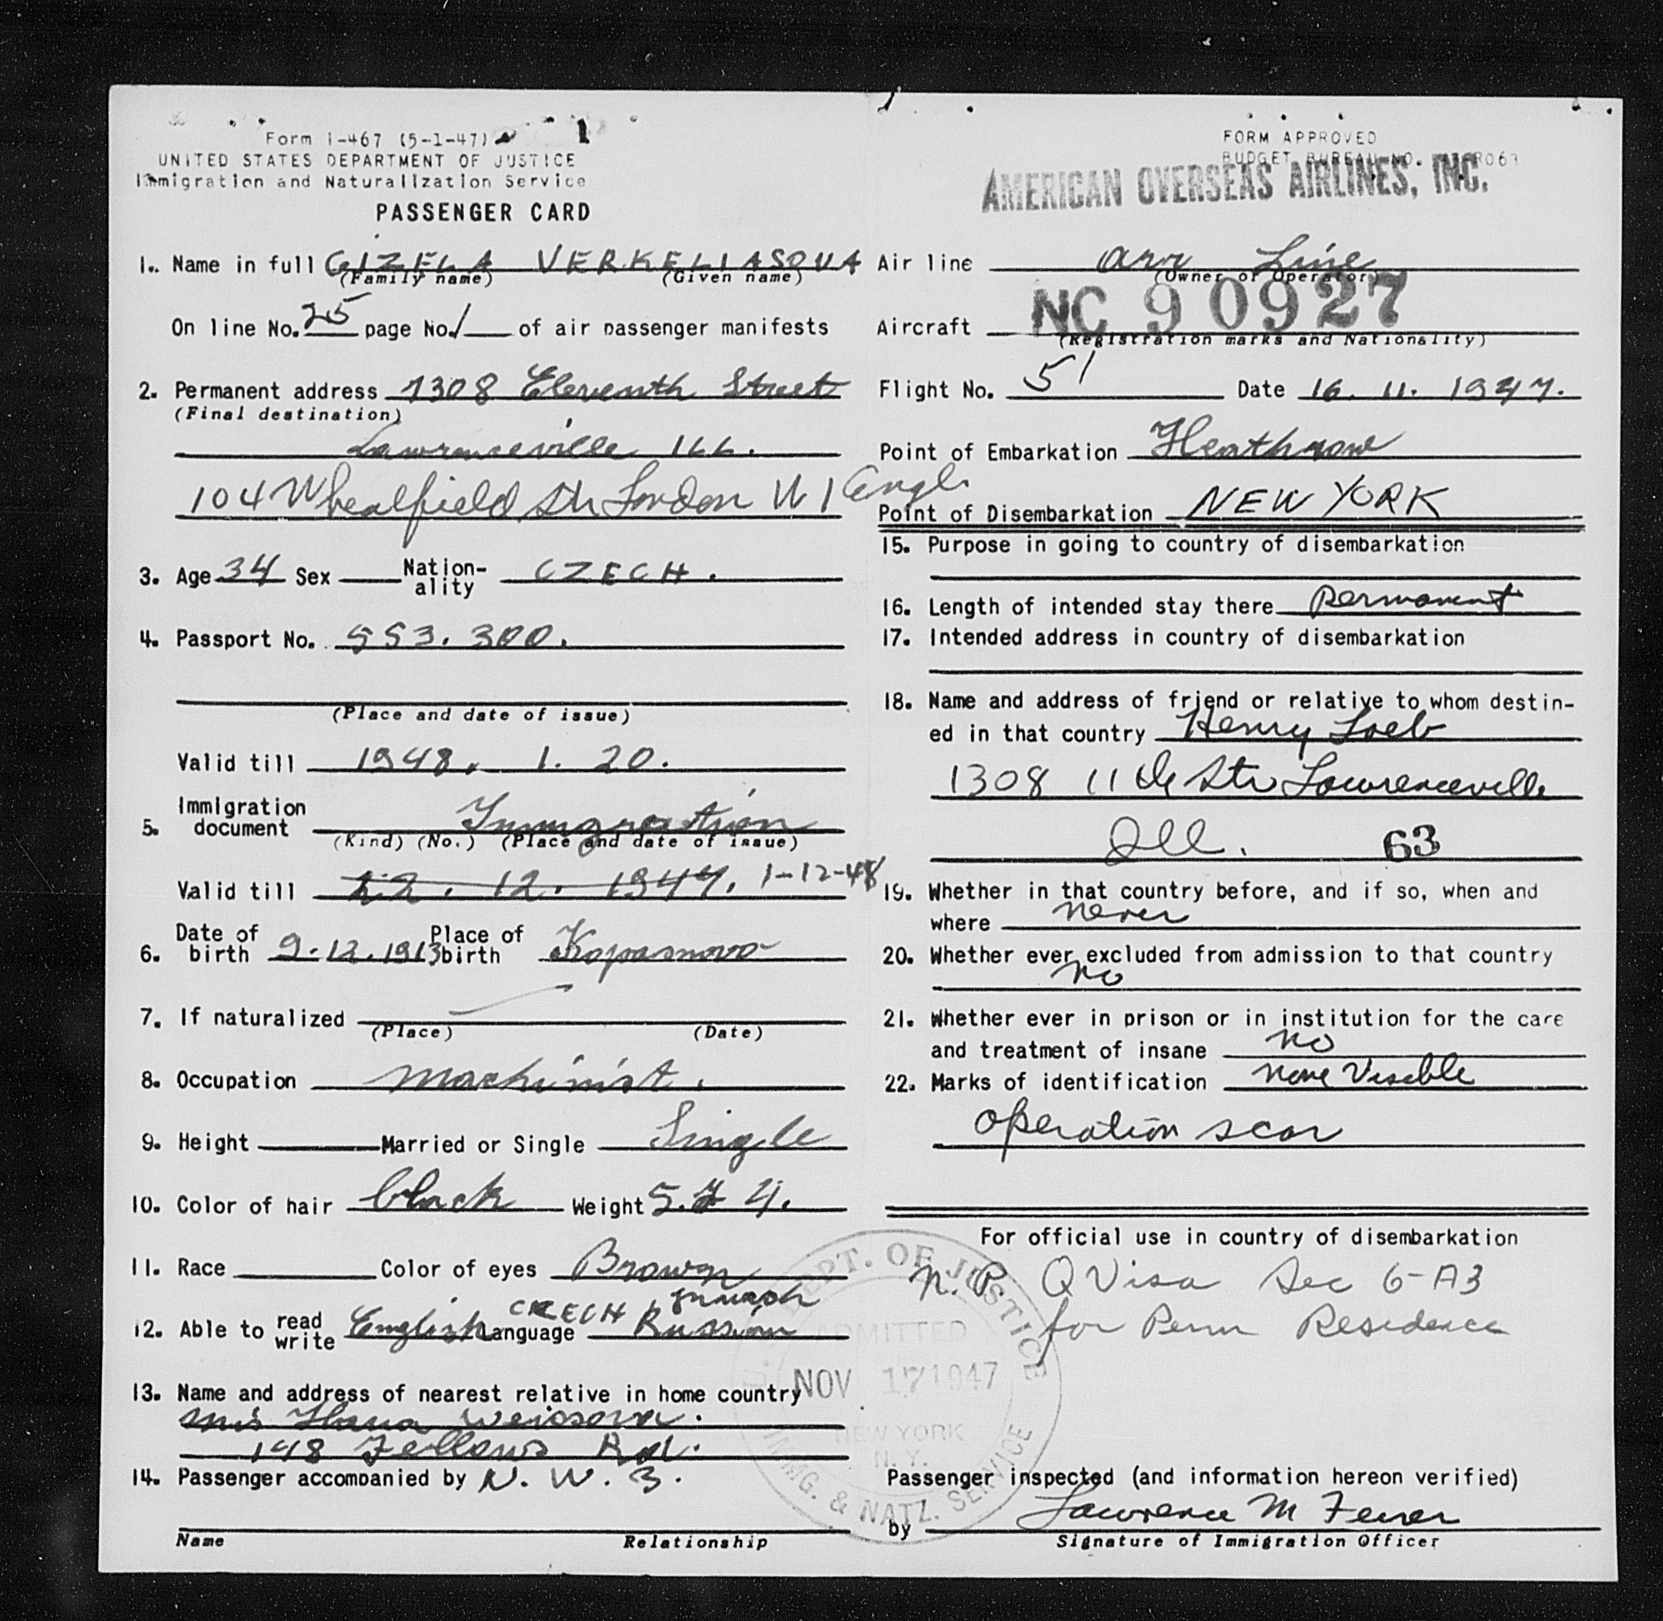 Form I-467 (5-1-47)
UNITED STATES DEPARTMENT OF JUSTICE
Immigration and Naturalization Service
PASSENGER CARD
1. Name in full GIZELA VERKELIASOVA
(Family name) (Given name)
On line No. 25 page No. 1 of air passenger manifests
2. Permanent address 1308 Eleventh Street
(Final destination)
Lawrenceville ILL.
104 Whealfield Str London W1 Engl.
3. Age 34 Sex Nationality CZECH.
4. Passport No. 553.300.
(Place and date of issue)
Valid till 1948. 1. 20.
5. Immigration document Immigration
(Kind) (No.) (Place and date of issue)
Valid till 22. 12. 1947. 1-12-48
6. Date of birth 9.12.1913 Place of birth
7. If naturalized
(Place) (Date)
8. Occupation machinist.
9. Height Married or Single Single
10. Color of hair black Weight 5. 4.
11. Race Color of eyes Brown
12. Able to read write English Language CZECH, Russian
13. Name and address of nearest relative in home country
Weissova.
198 Fellows Rd.
14. Passenger accompanied by N. W. 3.
Name Relationship
FORM APPROVED
BUDGET BUREAU NO.
AMERICAN OVERSEAS AIRLINES, INC.
Air line Line
(Owner or Operator)
Aircraft NC 90927
(Registration marks and Nationality)
Flight No. 51 Date 16. 11. 1947.
Point of Embarkation Heathrow
Point of Disembarkation NEW YORK
15. Purpose in going to country of disembarkation
16. Length of intended stay there permanent
17. Intended address in country of disembarkation
18. Name and address of friend or relative to whom destin-
ed in that country Henry Loeb
1308 11th Str Lawrenceville
Ill. 63
19. Whether in that country before, and if so, when and
where never
20. Whether ever excluded from admission to that country
no
21. Whether ever in prison or in institution for the care
and treatment of insane no
22. Marks of identification none Visible
operation scar
For official use in country of disembarkation
N.P. Q Visa Sec 6-A3
for Perm Residence
U.S. DEPT. OF JUSTICE
ADMITTED
NOV 17 1947
NEW YORK
N.Y.
IMMG. & NATZ. SERVICE
Passenger inspected (and information hereon verified)
by Lawrence M
Signature of Immigration Officer